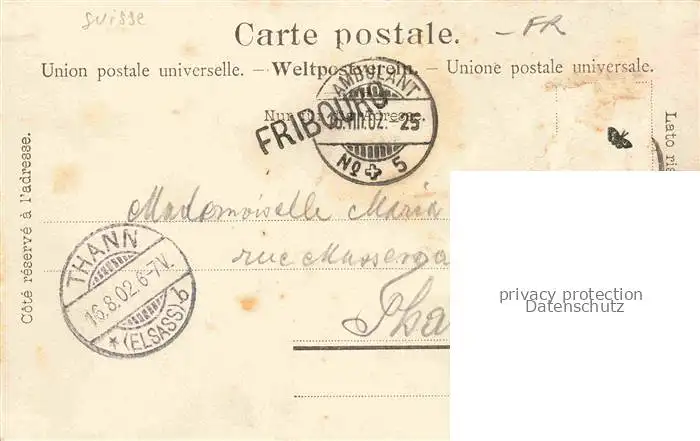 suisse
FR
Carte postale.
Union postale universelle. — Weltpostverein. — Unione postale universale.
Nur für die Adresse.
AMBULANT
25
No 5
FRIBOURG
Côté réservé à l'adresse.
Lato ris
Mademoiselle Maria
rue
THANN
16.8.02.6-7V.
* (ELSASS) b
privacy protection
Datenschutz